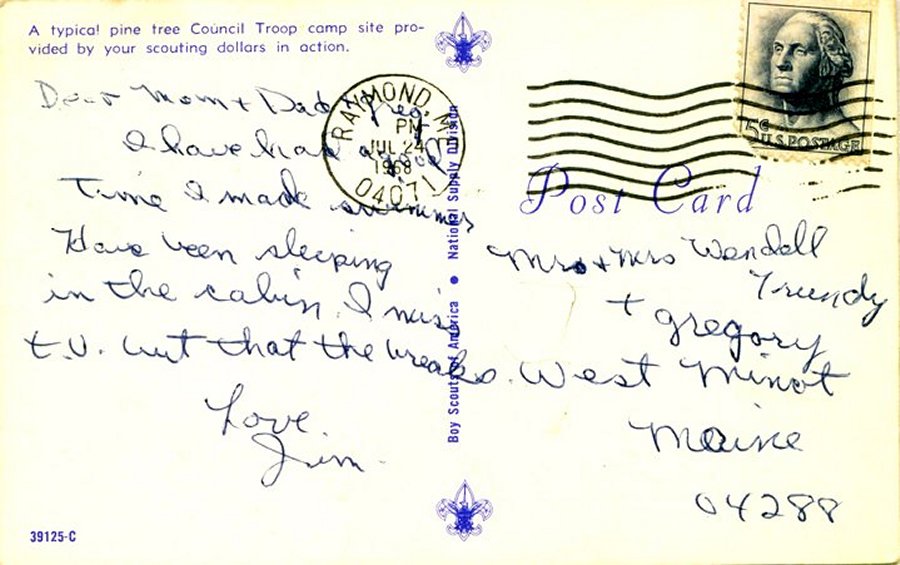 A typical pine tree Council Troop camp site pro-
vided by your scouting dollars in action.
Dear Mom + Dad + Greg,
I have had a good
time I made swimmer
Have been sleeping
in the cabin. I miss
t.v. but that the breaks.
Love.
Jim.
39125-C
Boy Scouts of America • National Supply Division
RAYMOND, ME
PM
JUL 24
1968
04071
5¢
U.S. POSTAGE
Post Card
Mrs + Mrs Wendell
Trundy
+ Gregory
West Minot
Maine
04288